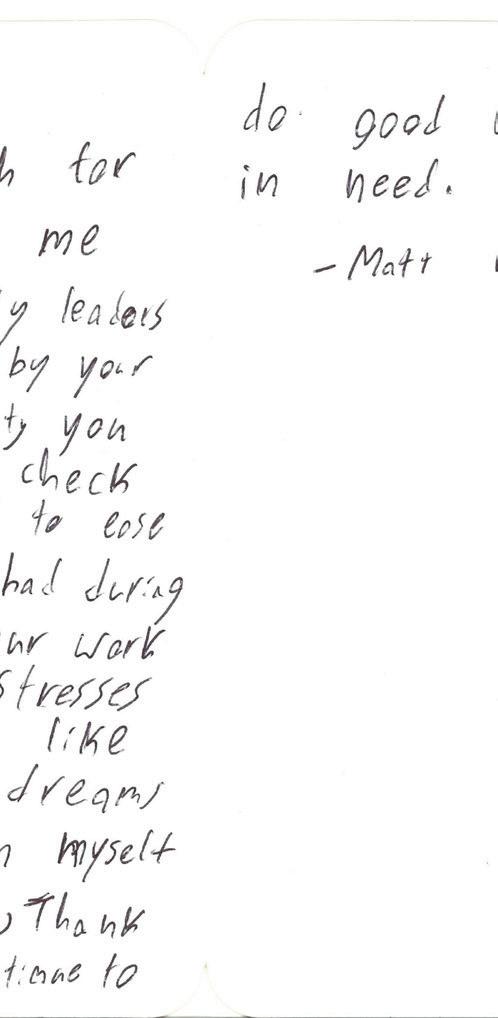 h for
me
y leaders
by your
ty you
check
to ease
had during
ur work
stresses
like
dreams
n myself
Thank
tinue to
do good
in need.
-Matt